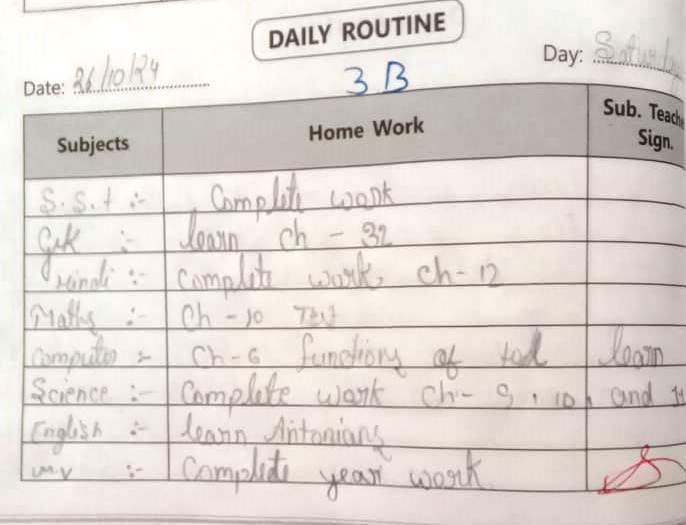 DAILY ROUTINE
Date: 26/10/24 Day: Saturday
3B
Subjects Home Work Sub. Teache Sign.
S.S.t :- Complete work
G.K :- learn ch - 32
Hindi :- Complete work, ch- 12
Maths :- Ch - 10 Test
Computer :- Ch-6 functions of learn
Science :- Complete work ch- 9, 10, and 11
English :- learn Antonians
M.V :- Complete year work